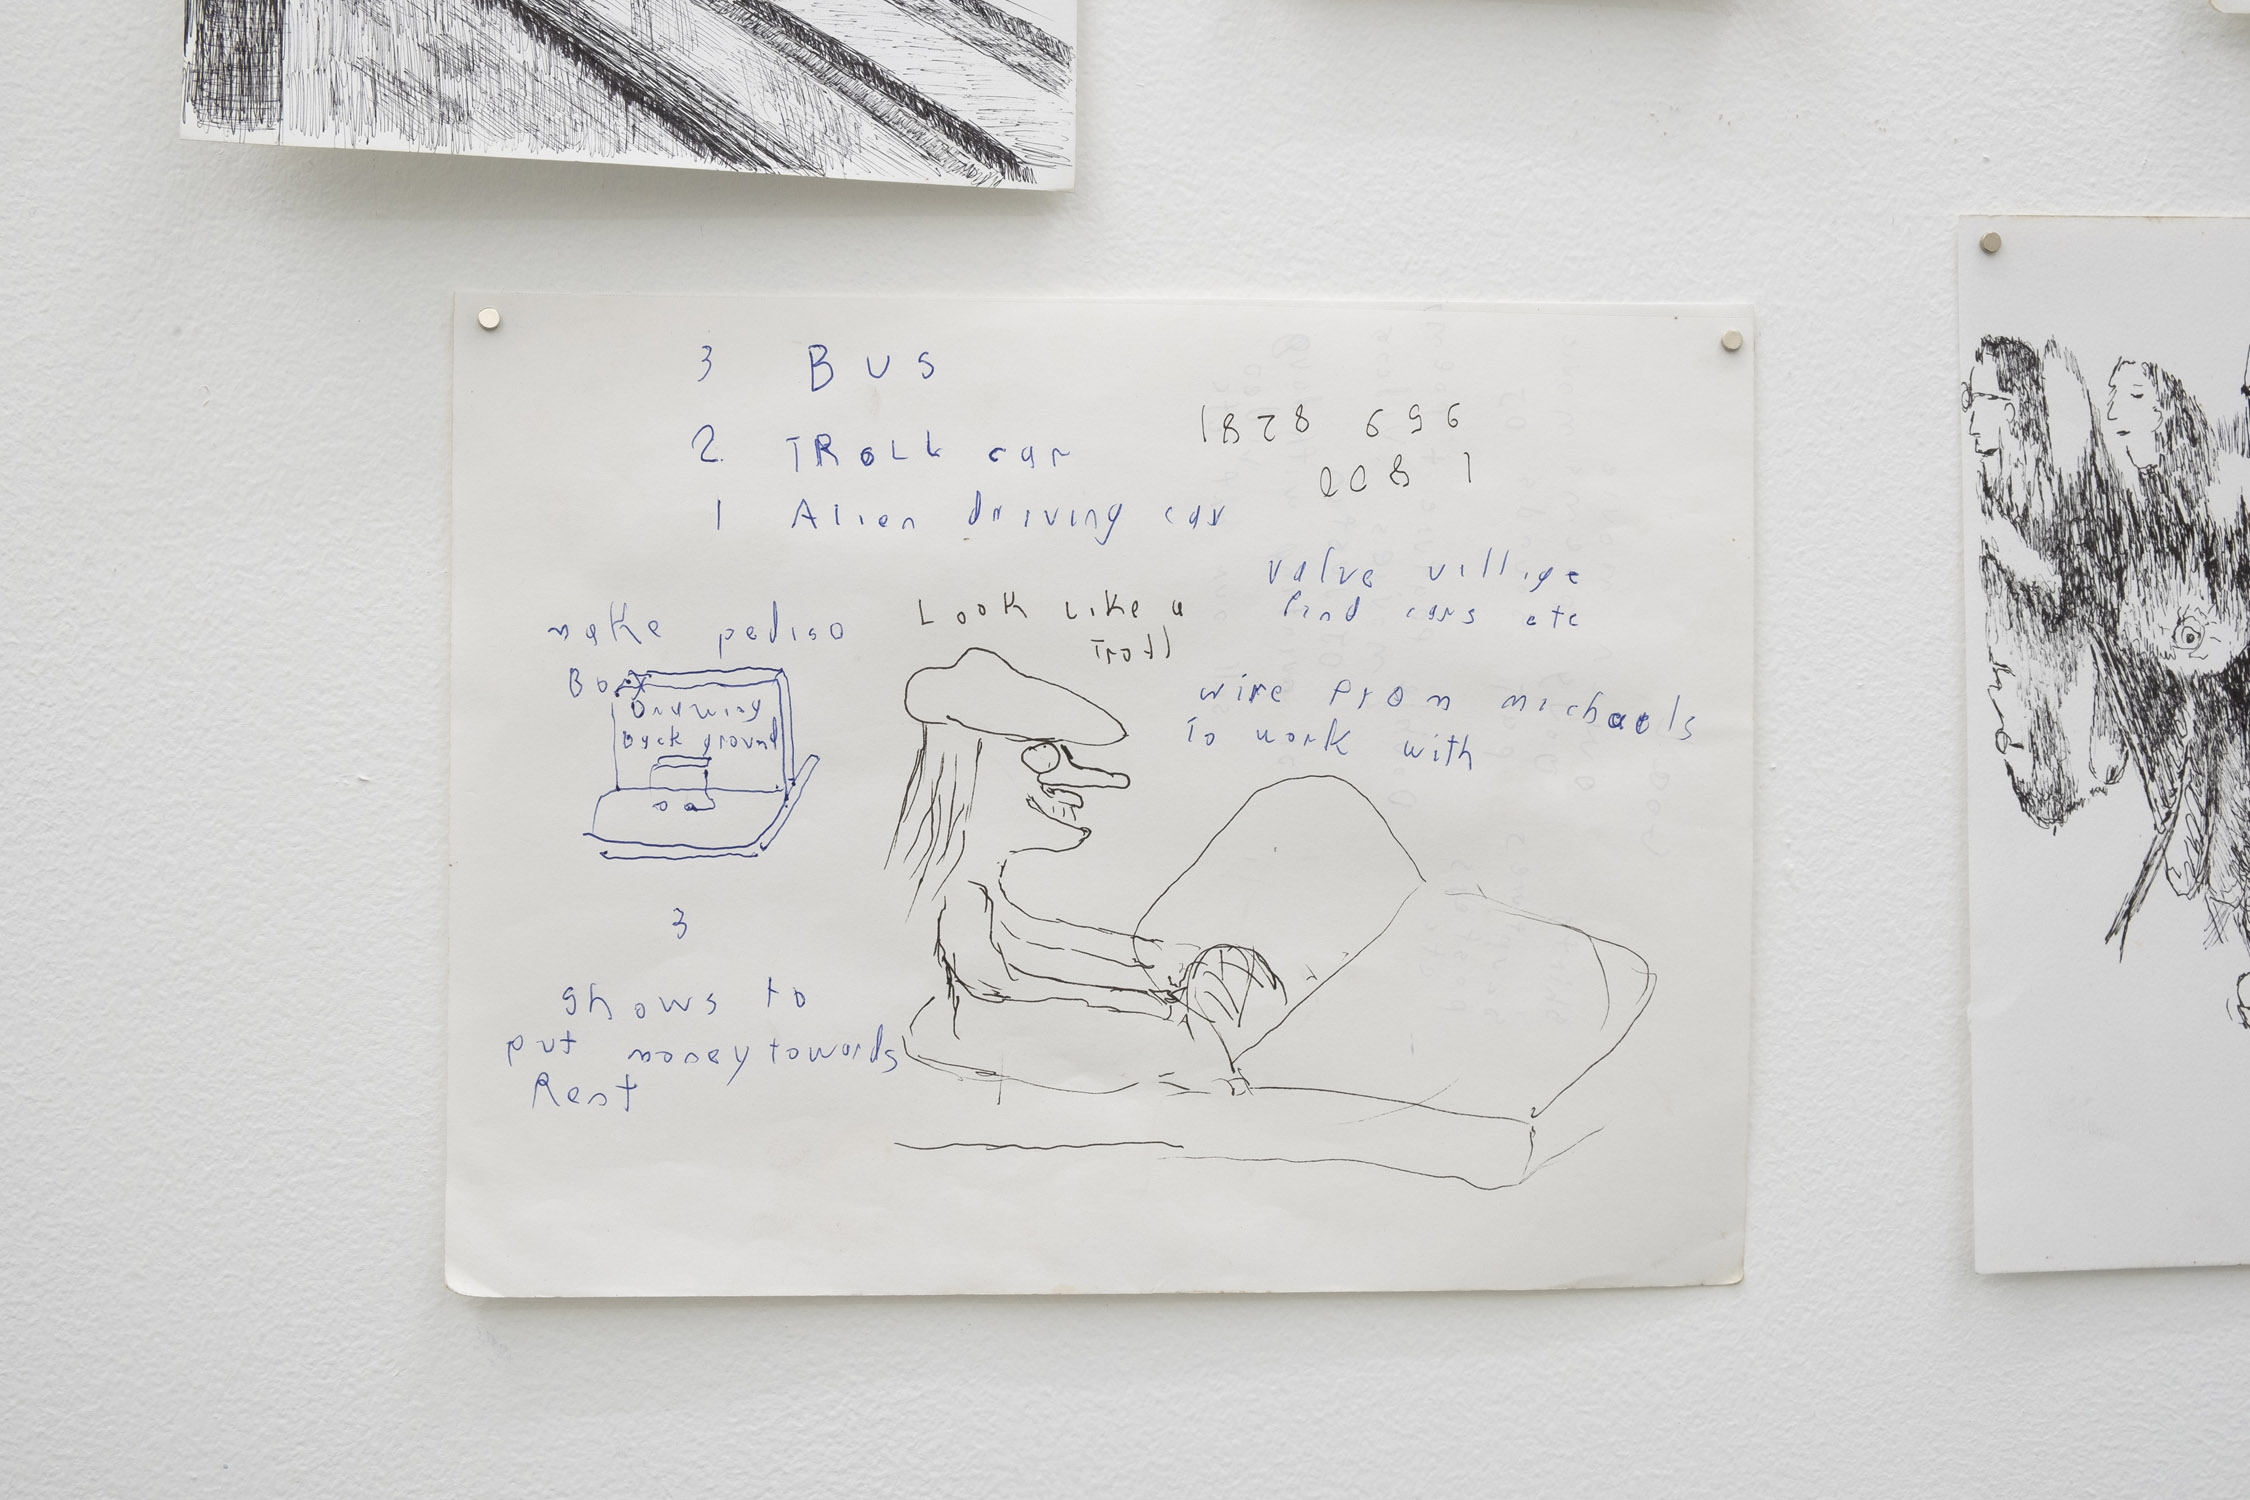 3 BUS
2 TROLL car
1 Alien driving car
1 800
8281
valve villige
find cars etc
make
Box
Drawing
back ground
Look Like a
Troll
wire from michaels
To work with
3
shows to
put money towards
Rent